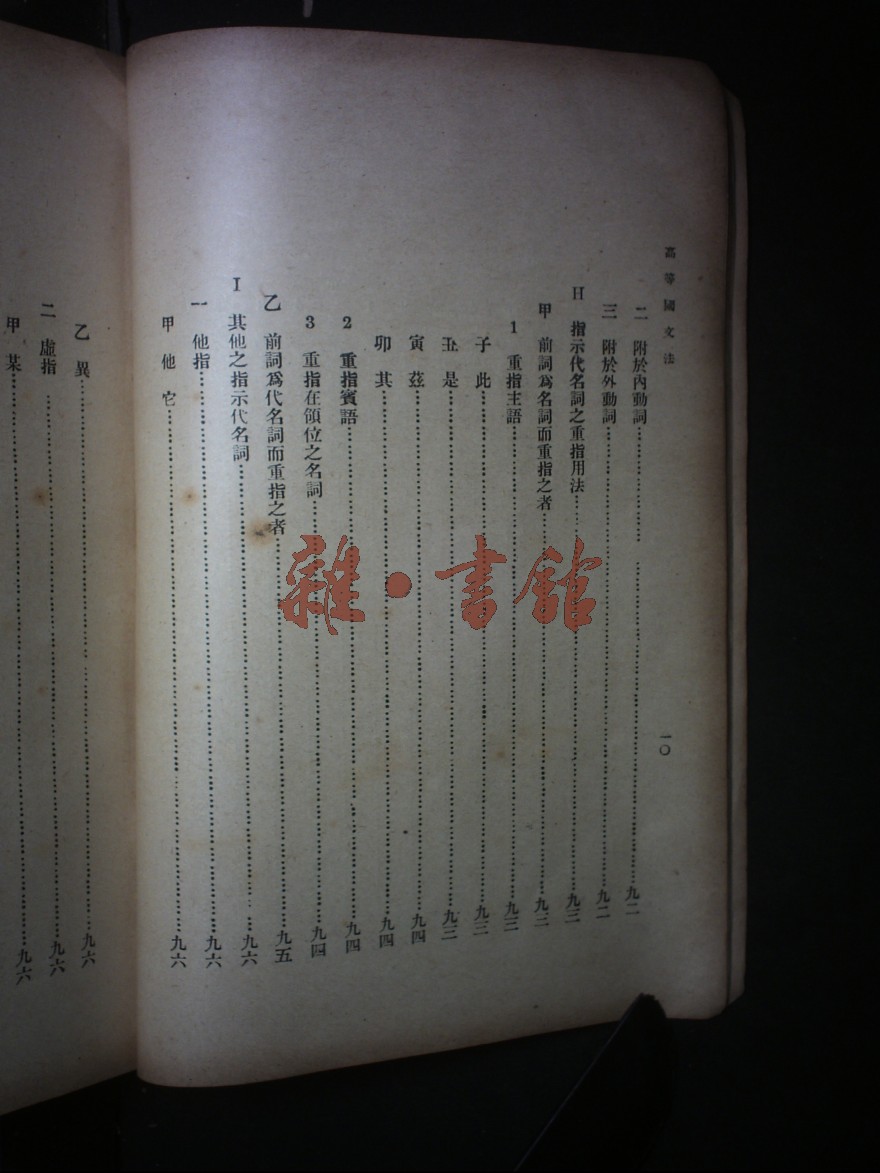 高等國文法
一〇
二 附於內動詞……九二
三 附於外動詞……九二
H 指示代名詞之重指用法……九三
甲 前詞爲名詞而重指之者……九三
1 重指主語……九三
子 此……九三
丑 是……九三
寅 茲……九四
卯 其……九四
2 重指賓語……九四
3 重指在領位之名詞……九四
乙 前詞爲代名詞而重指之者……九五
I 其他之指示代名詞……九六
一 他指……九六
甲 他 它……九六
乙 異……九六
二 虛指……九六
甲 某……九六
雜·書館